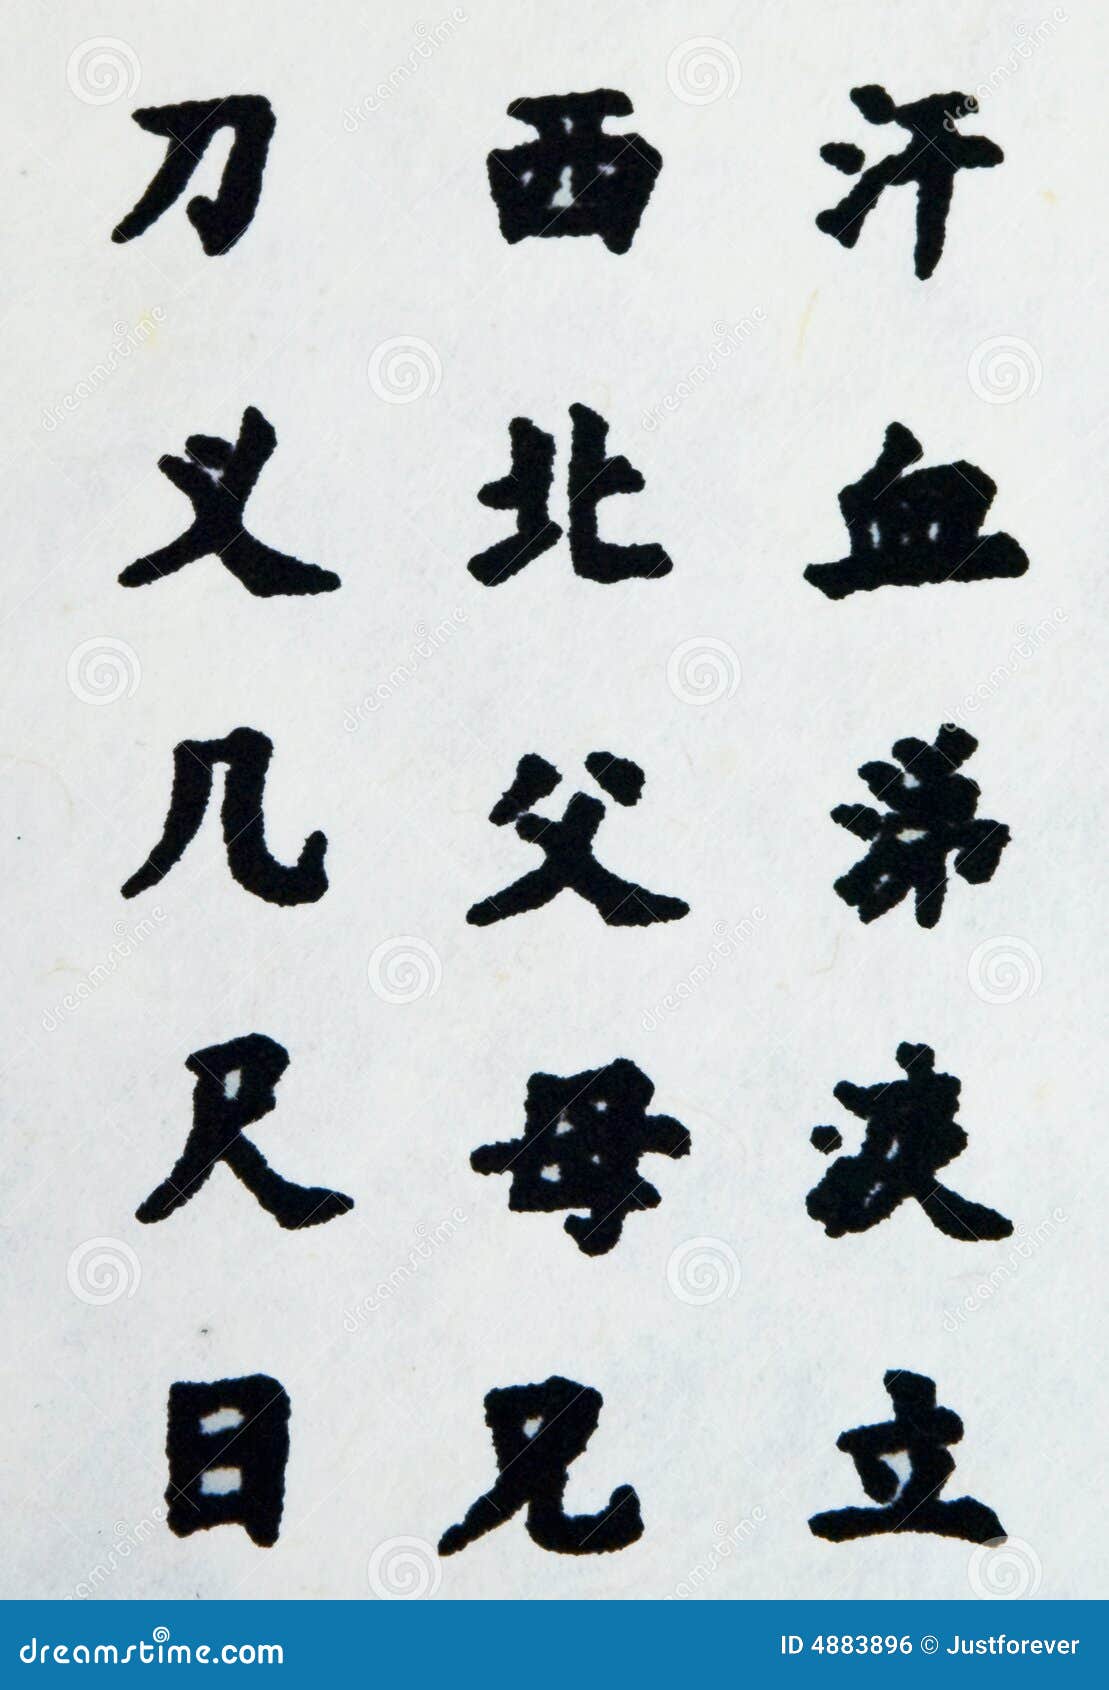 刀 西 汗
义 北 血
几 父 弟
尺 母 波
日 兄 立
dreamstime.com
ID 4883896 © Justforever